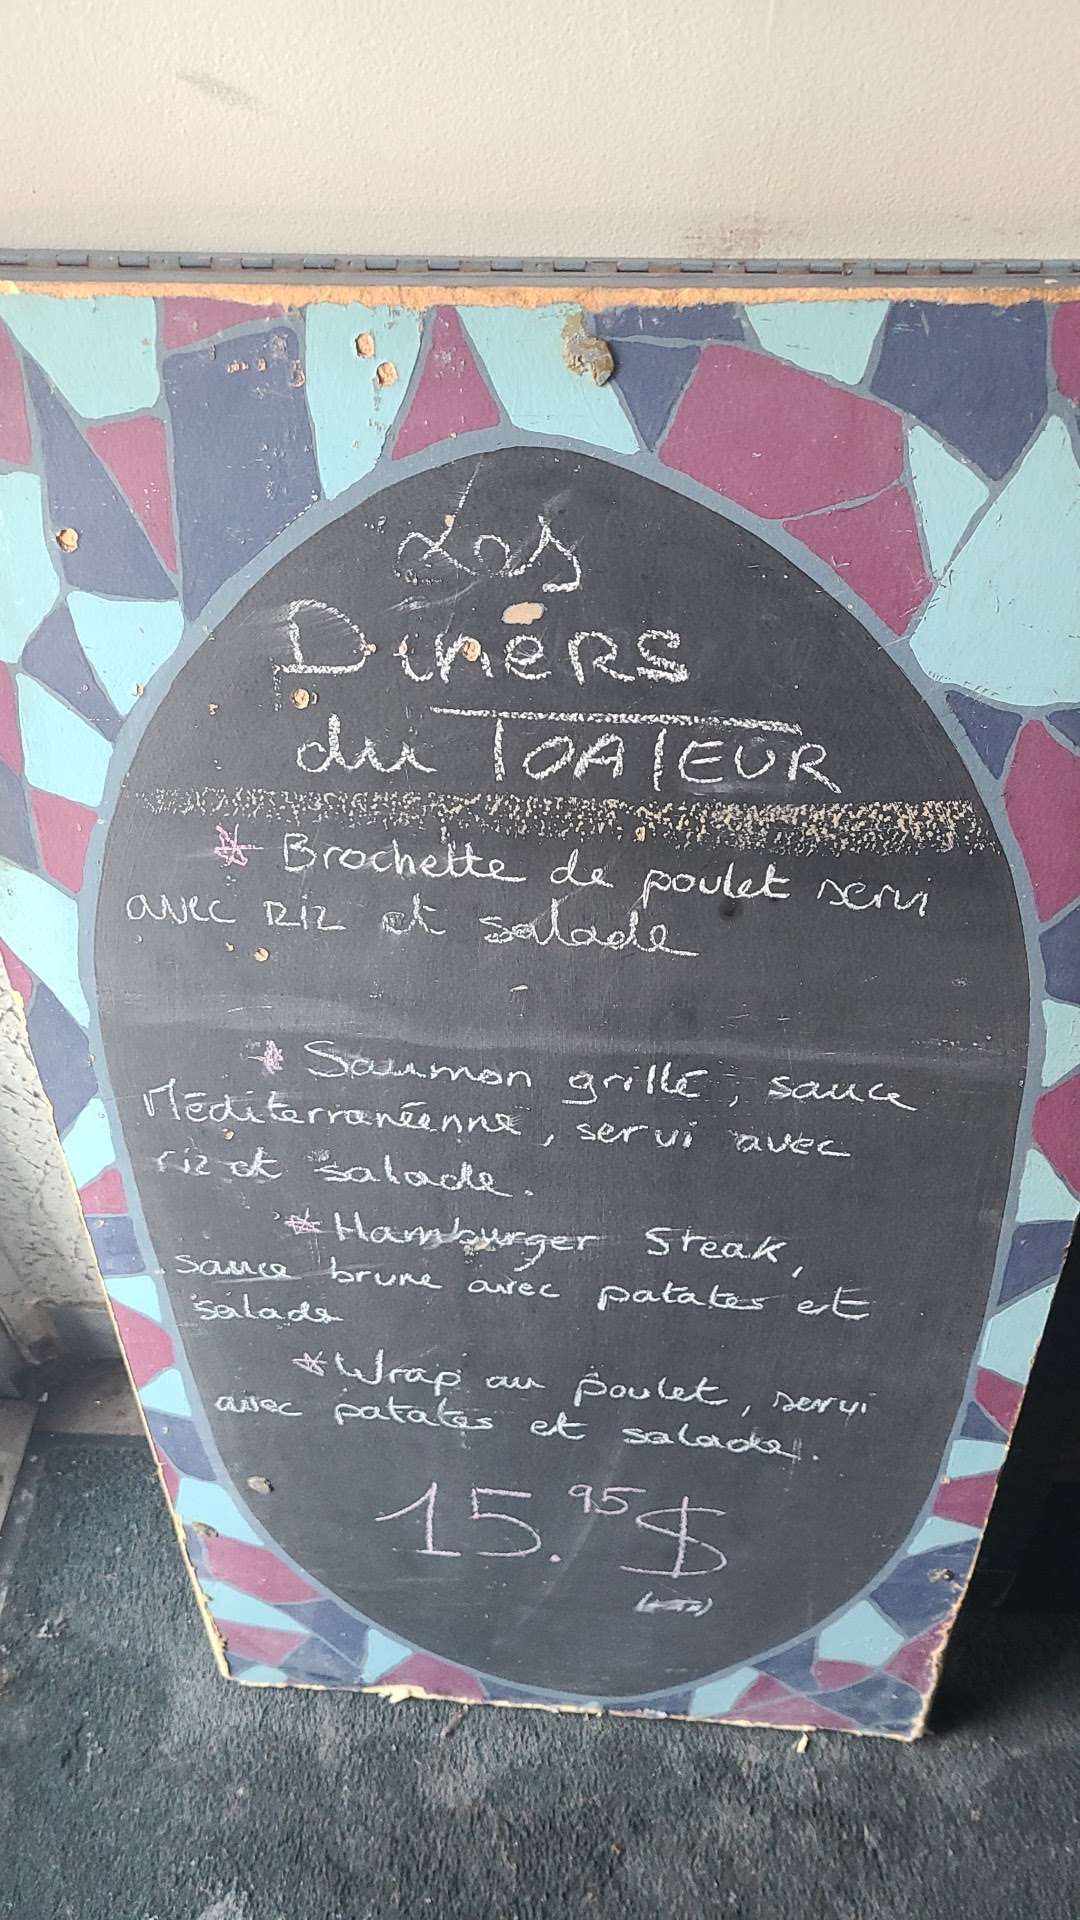 Les
Dinérs
du TOATEUR
* Brochette de poulet servi
avec Riz et salade
* Saumon grillé, sauce
Méditerranéenne, servi avec
riz et salade.
* Hamburger Steak,
sauce brune avec patates et
salade
* Wrap au poulet, servi
avec patates et salade.
15.95$